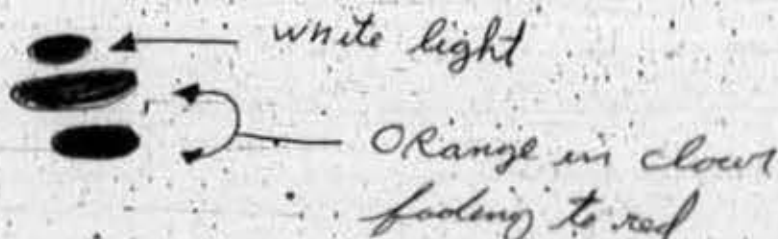 white light
ORange in
fading to red